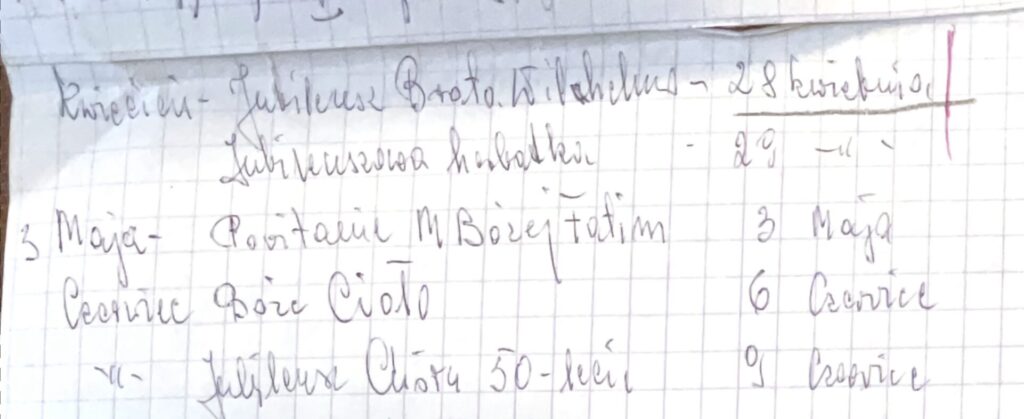 Kwiecień - Jubileusz Brata Wilhelma - 28 kwietnia
Jubileuszowa herbatka - 29 -"-
3 Maja - Powitanie M Bożej Fatim 3 Maja
Czerwiec Boże Ciało 6 Czerwiec
-"- Jubileusz Chóru 50-lecie 9 Czerwiec